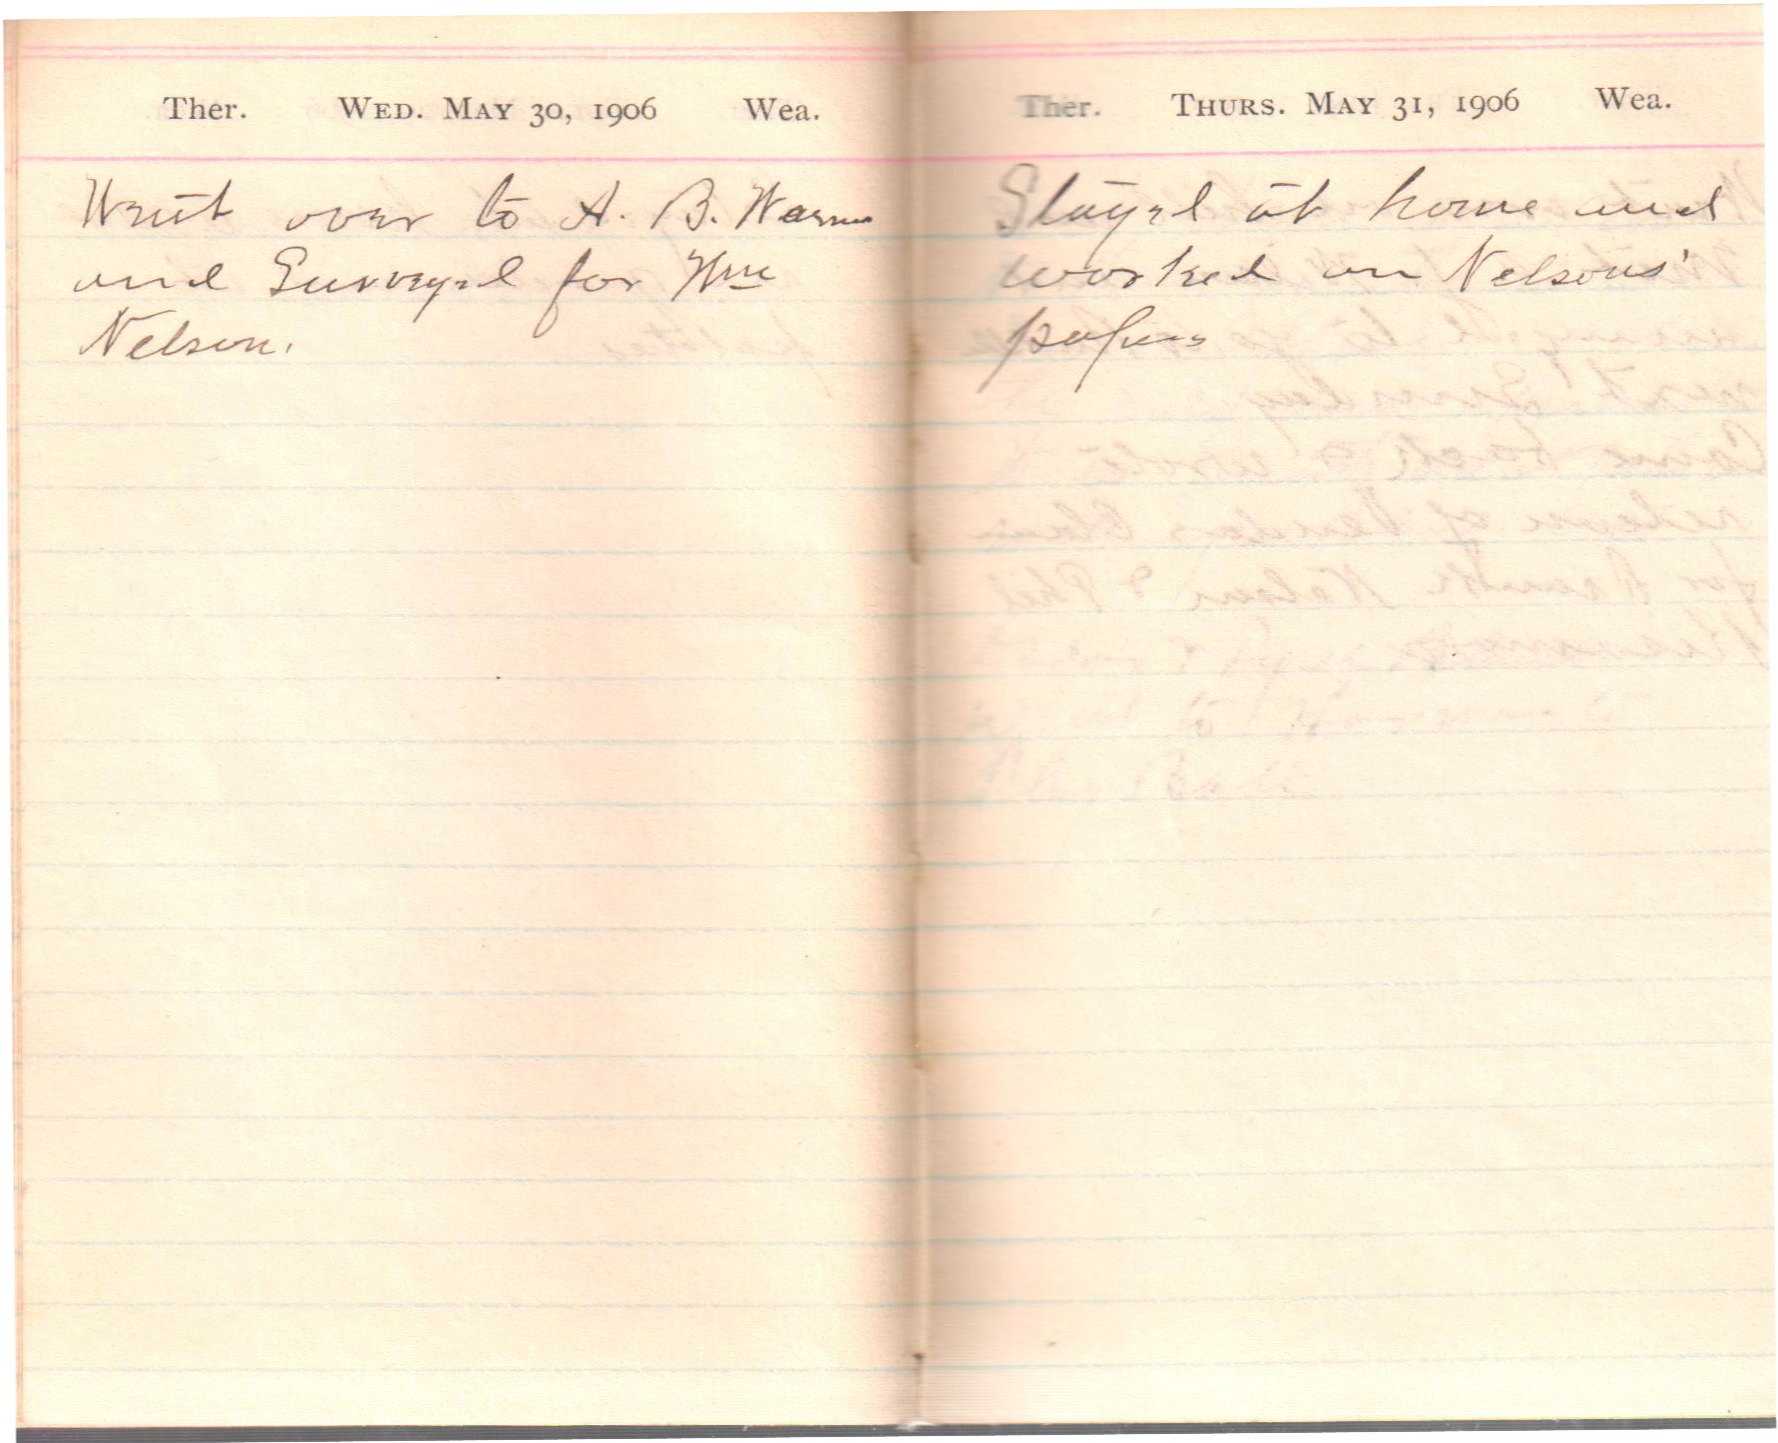 Ther. WED. MAY 30, 1906 Wea.
Went over to A. B.
and Surveyed for Wm
Nelson.
Ther. THURS. MAY 31, 1906 Wea.
Stayed at home and
worked on Nelsons'
papers